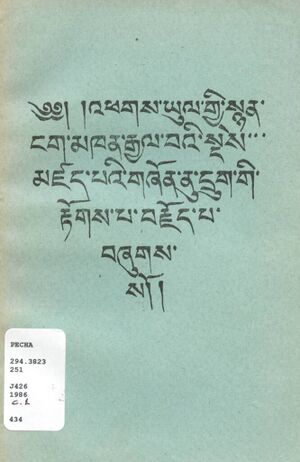 ༄༅། །འཕགས་ཡུལ་གྱི་སྙན་
ངག་མཁན་རྒྱལ་བའི་སྡེས་་་
མཛད་པའི་གཞོན་ནུ་དྲུག་གི་
རྟོགས་པ་བརྗོད་པ་
བཞུགས་
སོ།།
PECHA
294.3823
251
J426
1986
c.1
434